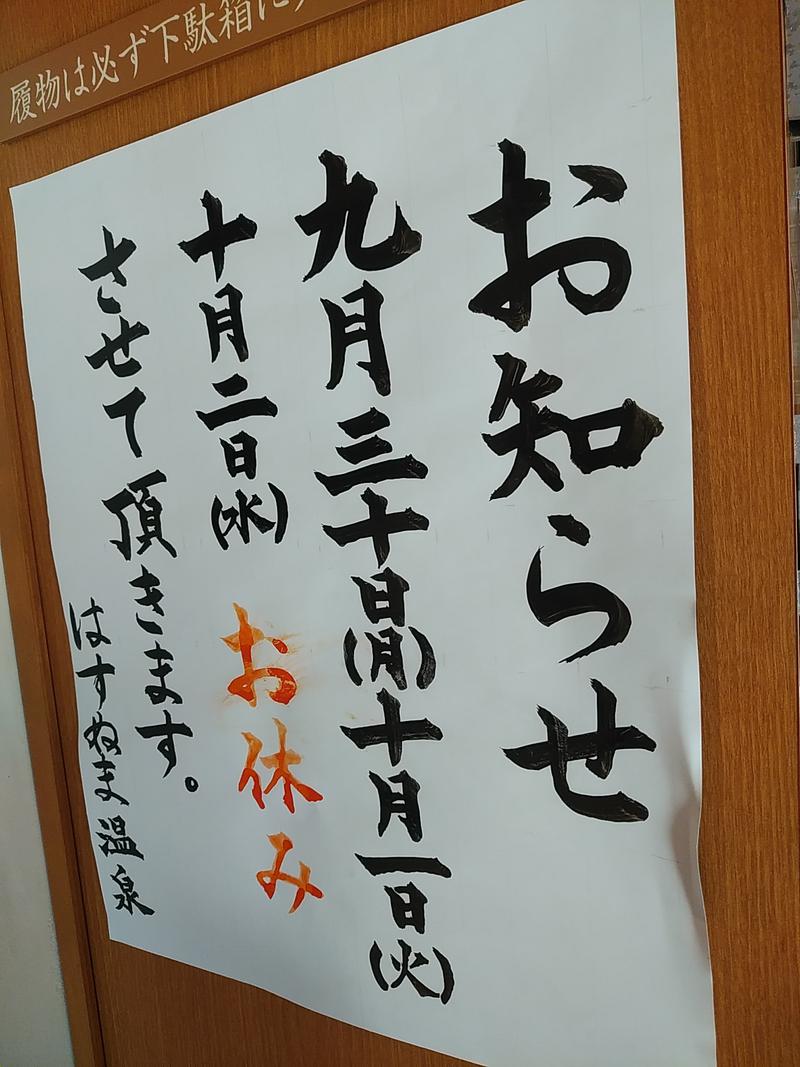 履物は必ず下駄箱に
お知らせ
九月三十日(月)十月一日(火)
十月二日(水) お休み
させて頂きます。
はすぬま温泉